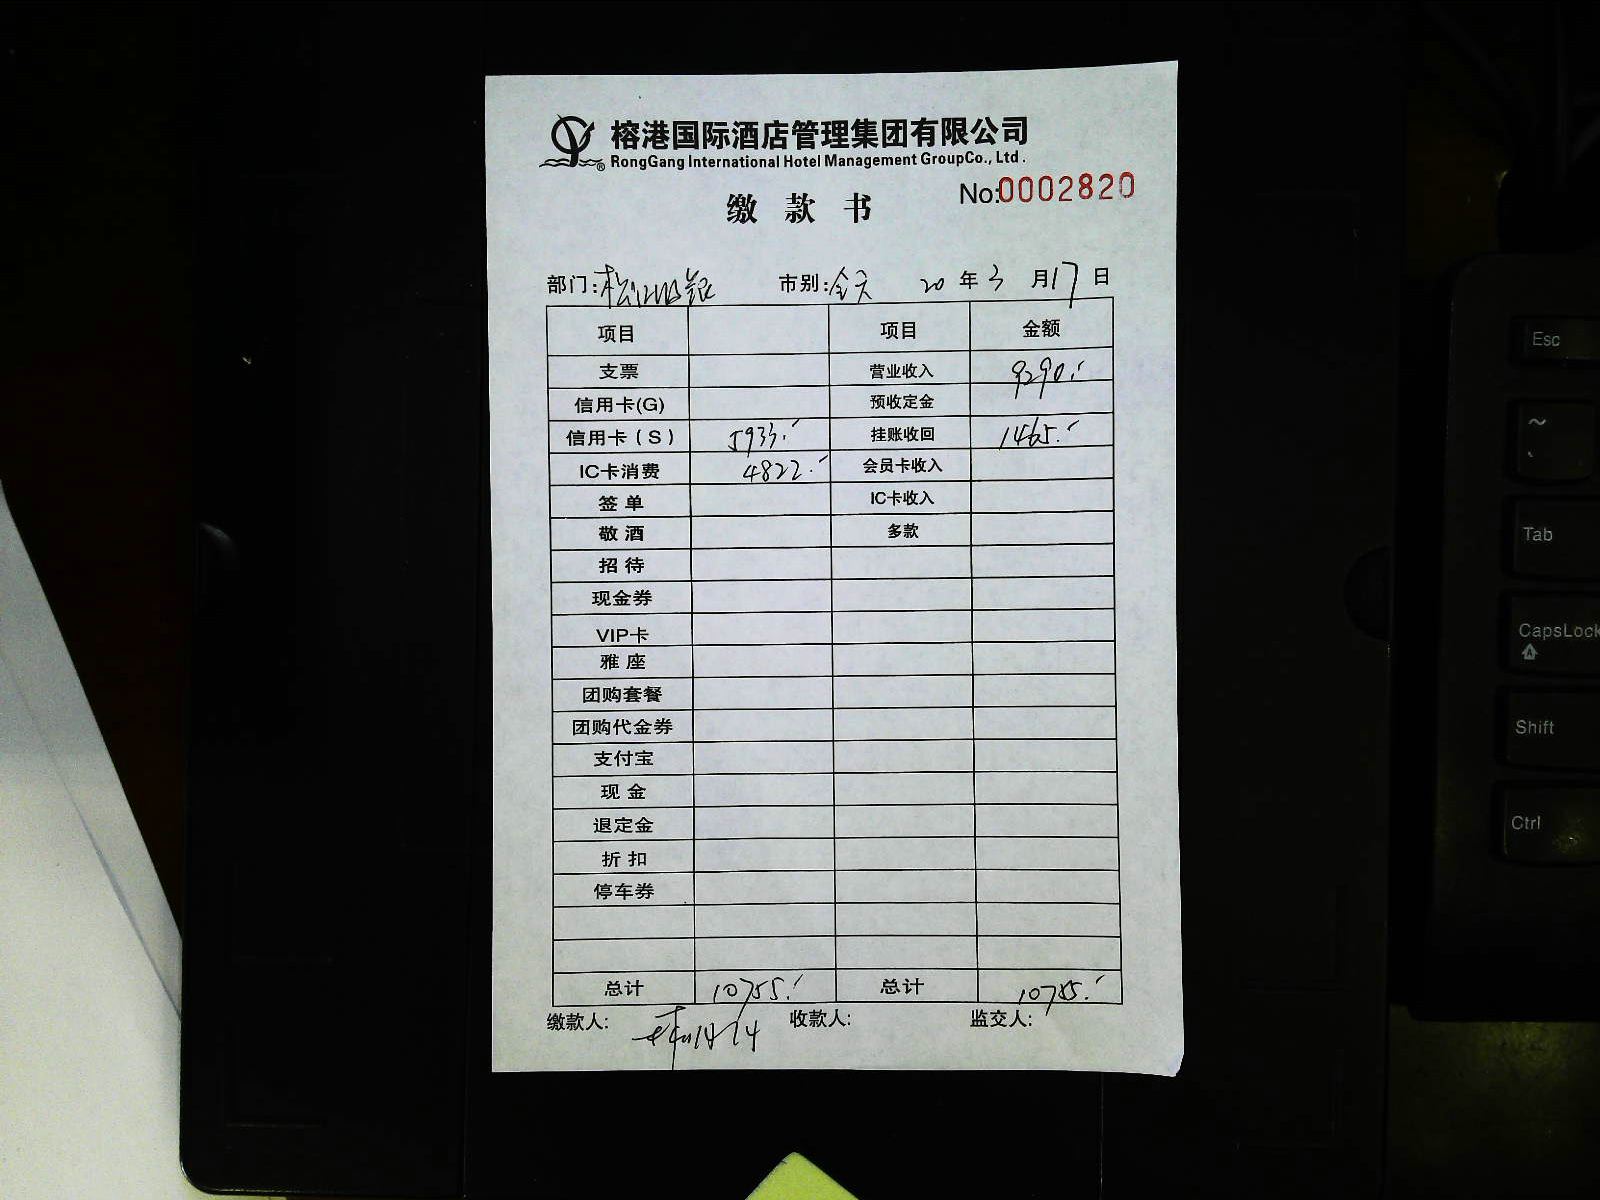 榕港国际酒店管理集团有限公司
RongGang International Hotel Management GroupCo., Ltd.
®
No:0002820
缴 款 书
部门: 市别:全天 20 年 3 月 17 日
项目 项目 金额
支票 营业收入 9290.-
信用卡(G) 预收定金
信用卡(S) 5933.- 挂账收回 1465.-
IC卡消费 4822.- 会员卡收入
签单 IC卡收入
敬酒 多款
招待
现金券
VIP卡
雅座
团购套餐
团购代金券
支付宝
现金
退定金
折扣
停车券
总计 10755.- 总计 10755.-
缴款人: 收款人: 监交人:
Esc
~
Tab
CapsLock
A
Shift
Ctrl